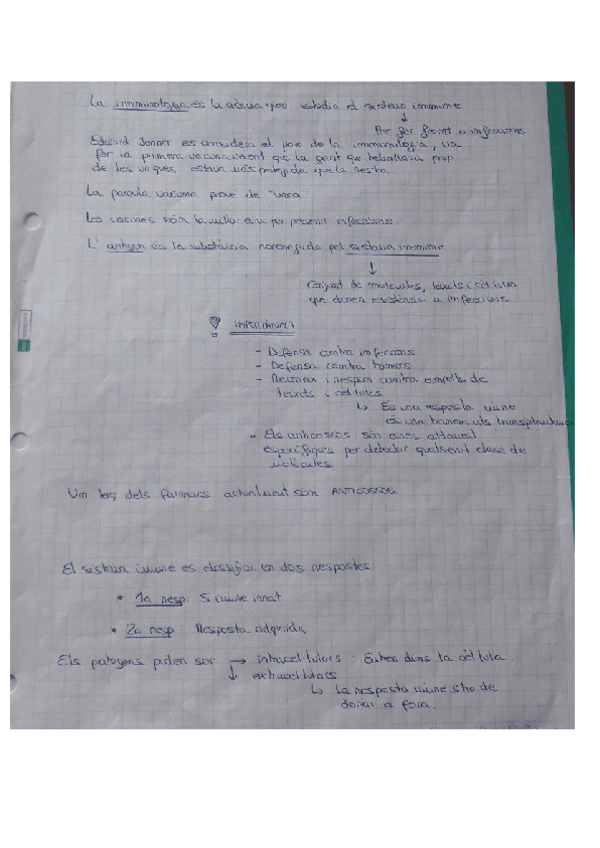 La immunologia és la ciència que estudia el sistema immune
↓
Per fer front a infeccions
Edward Jenner es considera el pare de la immunologia, va
fer la primera vacuna veient que la gent que treballava prop
de les vaques estava més protegida que la resta.
La paraula vacuna prove de "vaca"
Les vacunes són la millor eina per prevenir infeccions
L' antigen és la substància reconeguda pel sistema immune
↓
Conjunt de molècules, teixits i cèl·lules
que donen resistència a infeccions
IMPORTÀNCIA
- Defensa contra infeccions
- Defensa contra tumors
- Reconeix i respon contra empelts de
teixits i cèl·lules
↳ És una resposta immune
als transplantaments
- Els anticossos són eines altament
específiques per detectar qualsevol classe de
molècules
Un terç dels fàrmacs actualment són ANTICOSSOS
El sistema immune es classifica en dos respostes
* 1a resp: S. immune innat
* 2a resp: Resposta adquirida
Els patògens poden ser → intracel·lulars: Entren dins la cèl·lula
↓ extracel·lulars
↳ La resposta immune s'ha de
donar a fora.